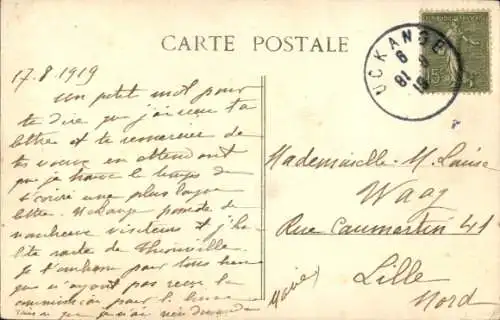 CARTE POSTALE
UCKANGE
15
17.8.1919
Un petit mot pour
te dire que j'ai reçu ta
lettre et te remercier de
tes voeux en attendant
que je trouve le temps de
t'écrire une plus longue
lettre. Uckange possède de
nombreux visiteurs et j'ha
bite route de Thionville.
Je t'embrasse pour tous
que n'ayant pas reçu la
commission pour le
que je n'ai
Mademoiselle M. Louise
Waag
Rue Caumartin 41
Lille
Nord